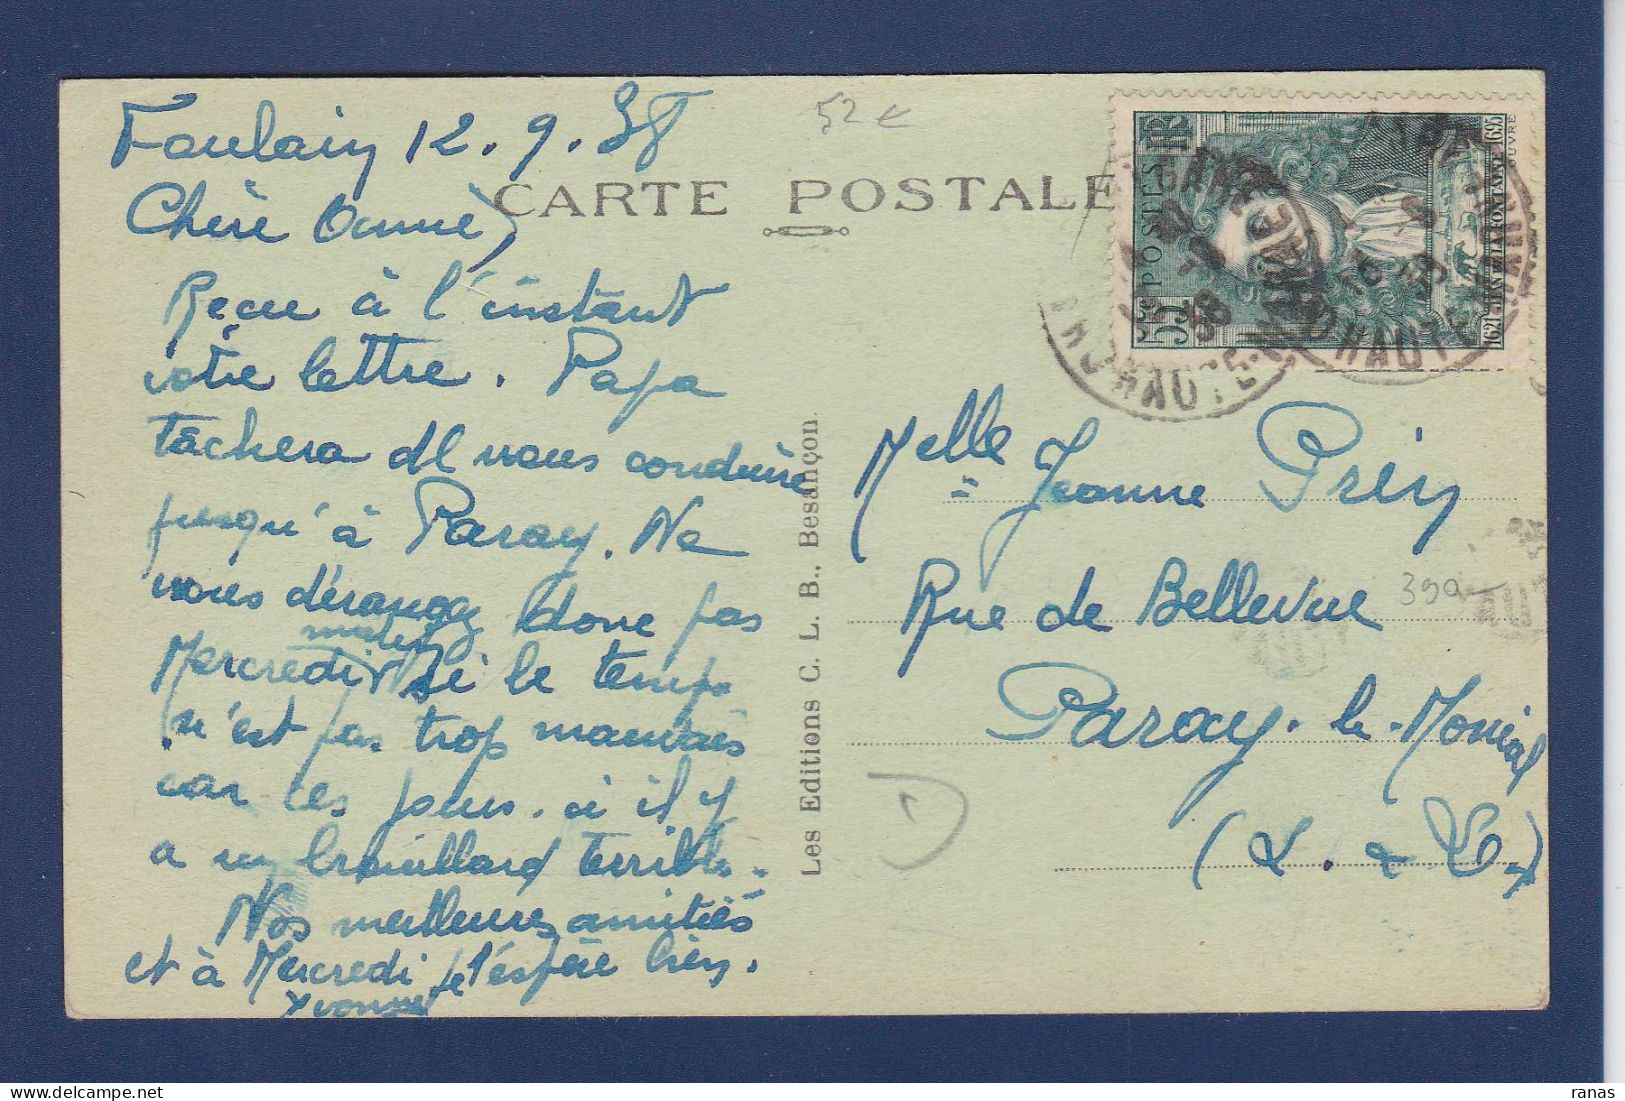 Foulain 12.9.38
52 €
CARTE POSTALE
Chère Amie,
Reçu à l'instant
votre lettre. Papa
tâchera de nous conduire
jusqu'à Paray. Ne
vous dérangez donc pas
matin
Mercredi si le temps
n'est pas trop mauvais
car ces jours-ci il y
a un brouillard terrible.
Nos meilleures amitiés
et à Mercredi je l'espère bien.
Yvonne
Les Editions C. L. B., Besançon.
POSTES
RF
55c
1621 JEAN DE LA FONTAINE 1695
HAUTE
Melle Jeanne Préy
Rue de Bellevue
399
Paray-le-Monial
(S. & L.)
ranas